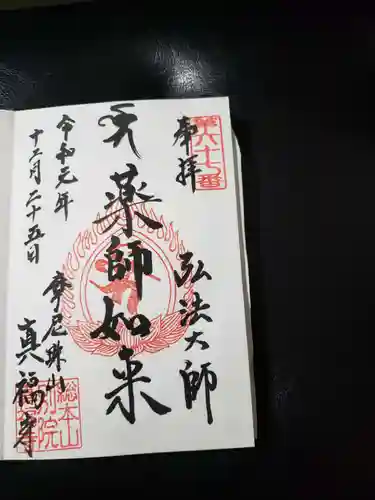 奉拝
第六十七番
弘法大師
薬師如来
令和元年
十二月二十五日
摩尼珠山
真福寺
総本山
別院